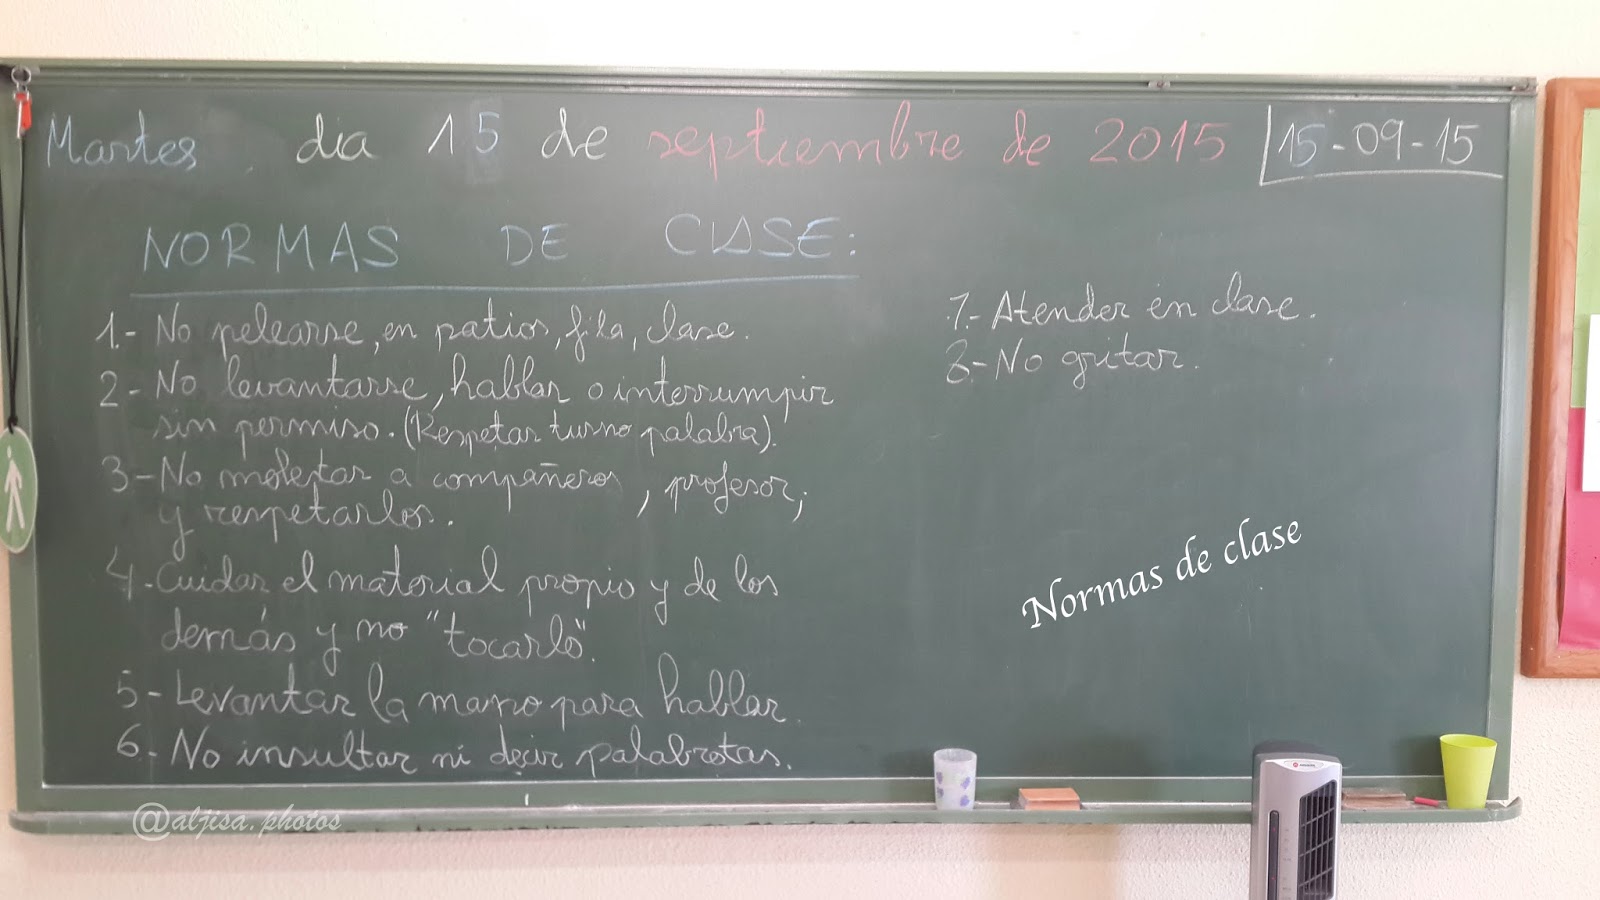 Martes, dia 15 de septiembre de 2015
15-09-15
NORMAS DE CLASE:
1.- No pelearse, en patios, fila, clase.
2- No levantarse, hablar o interrumpir
sin permiso. (Respetar turno palabra).
3- No molestar a compañeros, profesor,
y respetarlos.
4.- Cuidar el material propio y de los
demás y no "tocarlo".
5- Levantar la mano para hablar.
6- No insultar ni decir palabrotas.
7.- Atender en clase.
8.- No gritar.
Normas de clase
@aljisa.photos